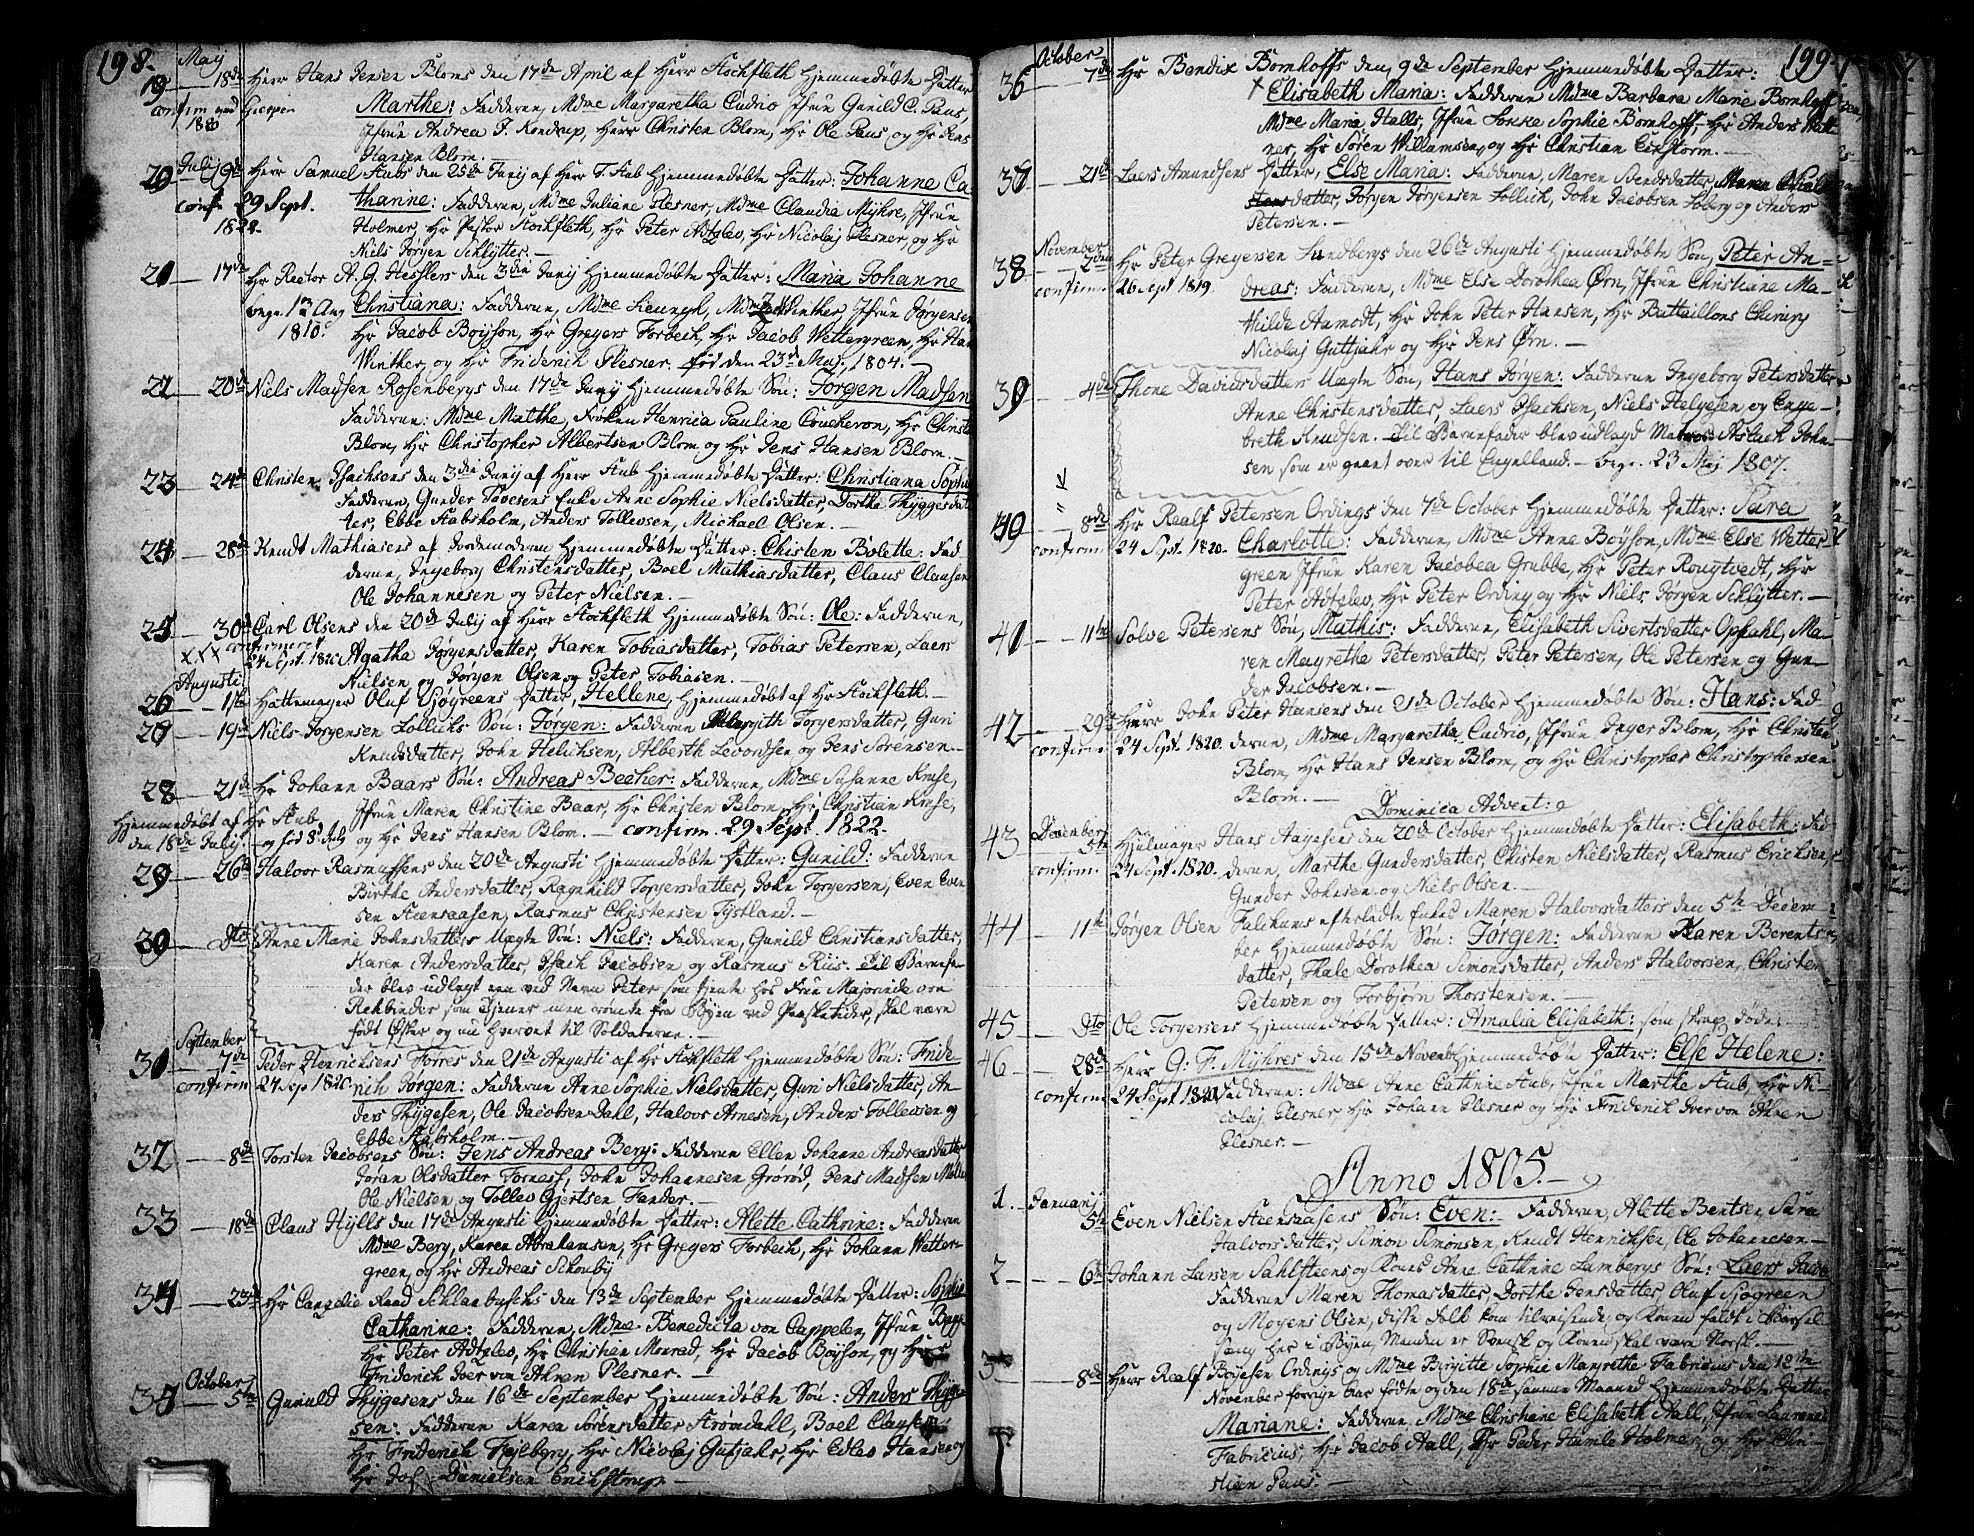 198.
May
19 18de Herr Hans Jensen Bloms den 17de April af Herr Stockfleth Hjemmedøbte Datter
confirm. ved Gjerpen
Marthe: Fadderne, Mdme Margaretha Cudrio, Jfrue Gunild C. Paus,
Jfrue Andrea J. Kondrup, Herr Christen Blom, Hr Ole Paus og Hr Jens
Hansen Blom. —
20 Julij 9de Herr Samuel Stubs den 25de Junij af Herr F. Stub Hjemmedøbte Datter: Johanne Ca-
confir. 29 Sept.
thanne: Fadderne, Mdme Juliane Plesner, Mdme Claudia Myhre, Jfrue
1822.
Holmer, Hr Pastor Stockfleth, Hr Peter Adtzlev, Hr Nicolaj Plesner, og Hr
Niels Jørgen Schlytter. —
21 17de Hr Rector A. G. Hesslers den 3die Junij Hjemmedøbte Datter: Maria Johanne
Christiana: Fadderne, Mdme Leunegh, Mdme Winther, Jfrue Jørgensen
1810.
Hr Jacob Boyson, Hr Gregers Forbech, Hr Jacob Wettergreen, Hr Hans
Winther, og Hr Friderich Plesner. fød den 23de Maj. 1804. —
22 20de Niels Madsen Rosenbergs den 17de Junij Hjemmedøbte Søn: Jørgen Madsen
Fadderne: Mdme Malthe, Frøken Henrica Pauline Cruckeron, Hr Christen
Blom, Hr Christopher Albertsen Blom og Hr Jens Hansen Blom. —
23 24de Christen Isachsens den 3die Junij af Herr Stub Hjemmedøbte Datter: Christiana Sophie
Fadderne, Gunder Tovesens Enke Anne Sophie Nielsdatter, Dorthe Thyggesdat-
ter, Ebbe Stabsholm, Anders Tollevsen, Michael Olsen. —
24 28de Knudt Mathiasens af Jordemoderen Hjemmedøbte Datter: Chisten Bolette: Fad-
derne, Ingeborg Christensdatter, Boel Mathiasdatter, Claus Clausen
Ole Johannesen og Peter Nielsen. —
25 30de Carl Olsens den 20de Julij af Herr Stockfleth Hjemmedøbte Søn: Ole: Fadderne,
xxx confirmeret
24 Sept. 1820 Agatha Jørgensdatter, Karen Tobiasdatter, Tobias Petersen, Laers
Nielsen og Jørgen Olsen og Peter Tobiasen. —
Augusti
26 1ste Hattemager Oluf Sjøgreens Datter, Hellene, Hjemmedøbt af Hr Stockfleth. —
27 19de Niels Jørgensen Lollicks Søn: Jørgen: Fadderne Margith Torgersdatter, Guri
Knudsdatter, John Helichsen, Alberth Levordsen og Jens Sørensen. —
28 21de Hr Johann Baars Søn: Andreas Becher: Fadderne, Mdme Susanne Kruse,
Jfrue Maren Christine Baar, Hr Christen Blom, Hr Christian Kruse,
Hjemmedøbt af Hr Stub
den 18de Julij. og fød 8de July og Hr Jens Hansen Blom. — confirm. 29 Sept. 1822.
29 26de Halvor Rasmussens den 20de Augusti Hjemmedøbte Datter: Gunild: Fadderne
Birthe Andersdatter, Ragnhild Torgersdatter, John Torgersen, Even Even-
sen Steensaasen, Rasmus Christensen Tystland. —
30 Dto Anne Marie Johnsdatters Uægte Søn: Niels: Fadderne, Gunild Christiansdatter,
Karen Andersdatter, Isach Jacobsen og Rasmus Riis. Til Barnefa-
der blev udlagt een ved Navn Peter som tjente hos Frue Majorinde von
Rehbinder som Tjener men rømte fra Byen ved Paasketider, skal være
født Øster og nu hvervet til Soldaterne. —
September
31 7de Peder Henrichsens Torres den 21de Augusti af Hr Stockfleth Hjemmedøbte Søn: Fride-
confirm 24 Sep 1820. rich Jørgen: Fadderne Anne Sophie Nielsdatter, Guri Nielsdatter, An-
ders Thygesen, Ole Jacobsen Dahl, Halvor Arnesen, Anders Tollevsen og
Ebbe Stabsholm. —
32 8de Torsten Jacobsens Søn: Jens Andreas Berg: Fadderne Ellen Johanne Andreasdatter
Jøran Olsdatter Forness, John Johannesen Grørød, Jens Madsen
Ole Nielsen og Tollev Gjertsen Fander. —
33 18de Claus Hylls den 17de Augusti Hjemmedøbte Datter: Alette Cathrine: Fadderne
Mdme Berg, Karen Abrahamsen, Hr Gregers Forbech, Hr Johann Wetter-
green, og Hr Andreas Schouby
34 23de Hr Cancelie Raad Schlanbuschs den 13de September Hjemmedøbte Datter: Sophie
Catharine: Fadderne, Mdme Benedicta von Cappelen, Jfrue
Hr Peter Adtzlev, Hr Christian Monrad, Hr Jacob Boyson, og Herr
Friderich Iver von Ahnen Plesner. —
October
35 5te Gunuld Thygesens den 16de September Hjemmedøbte Søn: Anders Thyge-
sen: Fadderne Karen Sørensdatter Stromdahl, Boel Clausen
Hr Friderich Fejlberg, Hr Nicolaj Gutjahr, Hr Edlev Hansen og
Hr Danielsen
199
October
36 7de Hr Bendix Bomhoffs den 9de September Hjemmedøbte Datter:
Elisabeth Maria: Fadderne Mdme Barbara Marie Bomhoff
Mdme Maria Halls, Jfrue Sophie Bomhoff, Hr Anders
ner, Hr Søren Willumsen, og Hr Christian Eckstorm. —
37 21de Laers Amundsens Datter, Else Maria: Fadderne, Maren Bendsdatter, Maren
datter, Jørgen Jørgensen Lollich, John Jacobsen Soberg og Anders
Petersen. —
November
38 2den Hr Peter Gregersen Lundbergs den 26de Augusti Hjemmedøbte Søn, Peter An-
confirm. 26 Sept 1819. dreas: Fadderne, Mdme Else Dorothea Ørn, Jfrue Christiane Ma-
thilde Aamodt, Hr John Peter Hansen, Hr Battaillons Chirurg
Nicolaj Guttjahr og Hr Jens Ørn. —
39 4de Thone Davidsdatters Uægte Søn, Hans Jørgen: Fadderne Ingeborg Petersdatter
Anne Christensdatter, Laers Isachsen, Niels Helgesen, og Enge-
breth Knudsen. Til Barnefader blev udlagd Matros Aslach John-
sen som er gaaet over til Engelland. — begr. 23 Maj 1807.
40 8de Hr Realf Petersen Ordings den 7de October Hjemmedøbte Datter: Sara
confirm. 24 Sept. 1820. Charlotte: Fadderne, Mdme Anne Boyson, Mdme Else Wetter-
green Jfrue Karen Jacobea Grubbe, Hr Peter Rougtvedt, Hr
Peter Adtzlev, Hr Peter Ording og Hr Niels Jørgen Schlytter. —
41 11te Sølve Petersens Søn, Mathis: Fadderne, Elisabeth Sivertsdatter Opdahl, Ma-
ren Magrethe Petersdatter, Peter Petersen, Ole Petersen og Gun-
der Jacobsen. —
42 29de Herr John Peter Hansens den 21de October Hjemmedøbte Søn: Hans: Fad-
confirm. 24 Sept. 1820. derne, Mdme Margaretha Cudrio, Jfrue Inger Blom, Hr Christen
Blom, Hr Hans Jensen Blom, og Hr Christopher Christophersen
Blom. —
Dominica Advent: 2
43 December 5te Hjulmager Hans Aagesens den 20de October Hjemmedøbte Datter: Elisabeth: Fad-
confirm. 24 Sept. 1820. derne, Marthe Gundersdatter, Chisten Nielsdatter, Rasmus Erichsen,
Gunder Johnsen og Niels Olsen. —
44 11te Jørgen Olsen Falckums efterladte Enkes Maren Halvorsdatters den 5te Decem-
ber Hjemmedøbte Søn: Jørgen: Fadderne Karen Berents-
datter, Thale Dorothea Simonsdatter, Anders Halvorsen, Christen
Petersen og Torbjørn Thorstensen. —
45 Dto Ole Torgersens Hjemmedøbte Datter: Amalia Elisabeth: som strax døde.
46 28de Herr G. F. Myhres den 15de Novemb: Hjemmedøbte Datter: Else Helene:
confirm 24 Sept 1820 Fadderne: Mdme Anne Cathrine Stub, Jfrue Marthe Stub, Hr Ni-
colaj Plesner, Hr Johann Plesner og Hr Friderich Iver von Ahnen
Plesner. —
Anno 1805. —
1. Januarij 5te Even Nielsen Steensaasens Søn: Even: — Fadderne, Alette Bentsen, Sara
Halvorsdatter, Simon Simonsen, Knudt Henrichsen, Ole Johannesen. —
2 6te Johann Larsen Sahlsteens og Kones Anne Cathrine Lambergs Søn: Laers
Fadderne Maren Thomasdatter, Dorthe Jensdatter, Oluf Sjøgreen
og Mogens Olsen, disse Folk kom tilreisende, og Konen faldt i Barsel
Seng her i Byen, Manden er Svensk og Konen skal være Norsk. —
3 8de Herr Realf Boyesen Ordings og Mdme Birgitte Sophie Margrethe Fabricius den 12te
November forrige Aar fødte og den 18de samme Maaned Hjemmedøbte Datter
Mariane: Fadderne Mdme Christiane Elisabeth Aall, Jfrue Laurence
Fabricius, Hr Jacob Aall, Hr Peder Humle Holmer, og Hr Chri-
stian Paus. —